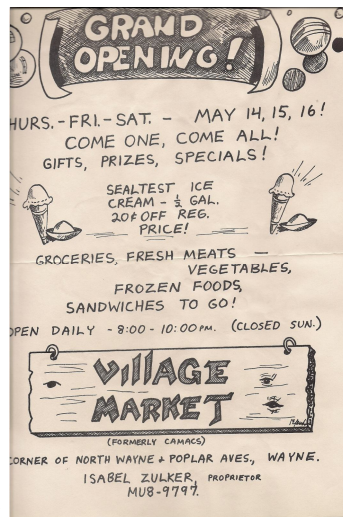 GRAND
OPENING!
HURS.-FRI.-SAT. - MAY 14, 15, 16!
COME ONE, COME ALL!
GIFTS, PRIZES, SPECIALS!
SEALTEST ICE
CREAM - ½ GAL.
20¢ OFF REG.
PRICE!
GROCERIES, FRESH MEATS —
VEGETABLES,
FROZEN FOODS,
SANDWICHES TO GO!
OPEN DAILY - 8:00 - 10:00 PM. (CLOSED SUN.)
VillAGE
MARKET
(FORMERLY CAMACS)
CORNER OF NORTH WAYNE + POPLAR AVES., WAYNE.
ISABEL ZULKER, PROPRIETOR
MU8-9797.